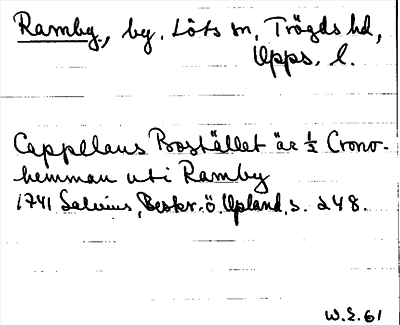 Ramby, by. Löts sn, Trögds hd,
Upps. l.
Cappellans Bostället är ½ Crono-
hemman uti Ramby
1741 Salvius, Beskr. ö. Upland, s. 248.
W.E. 61